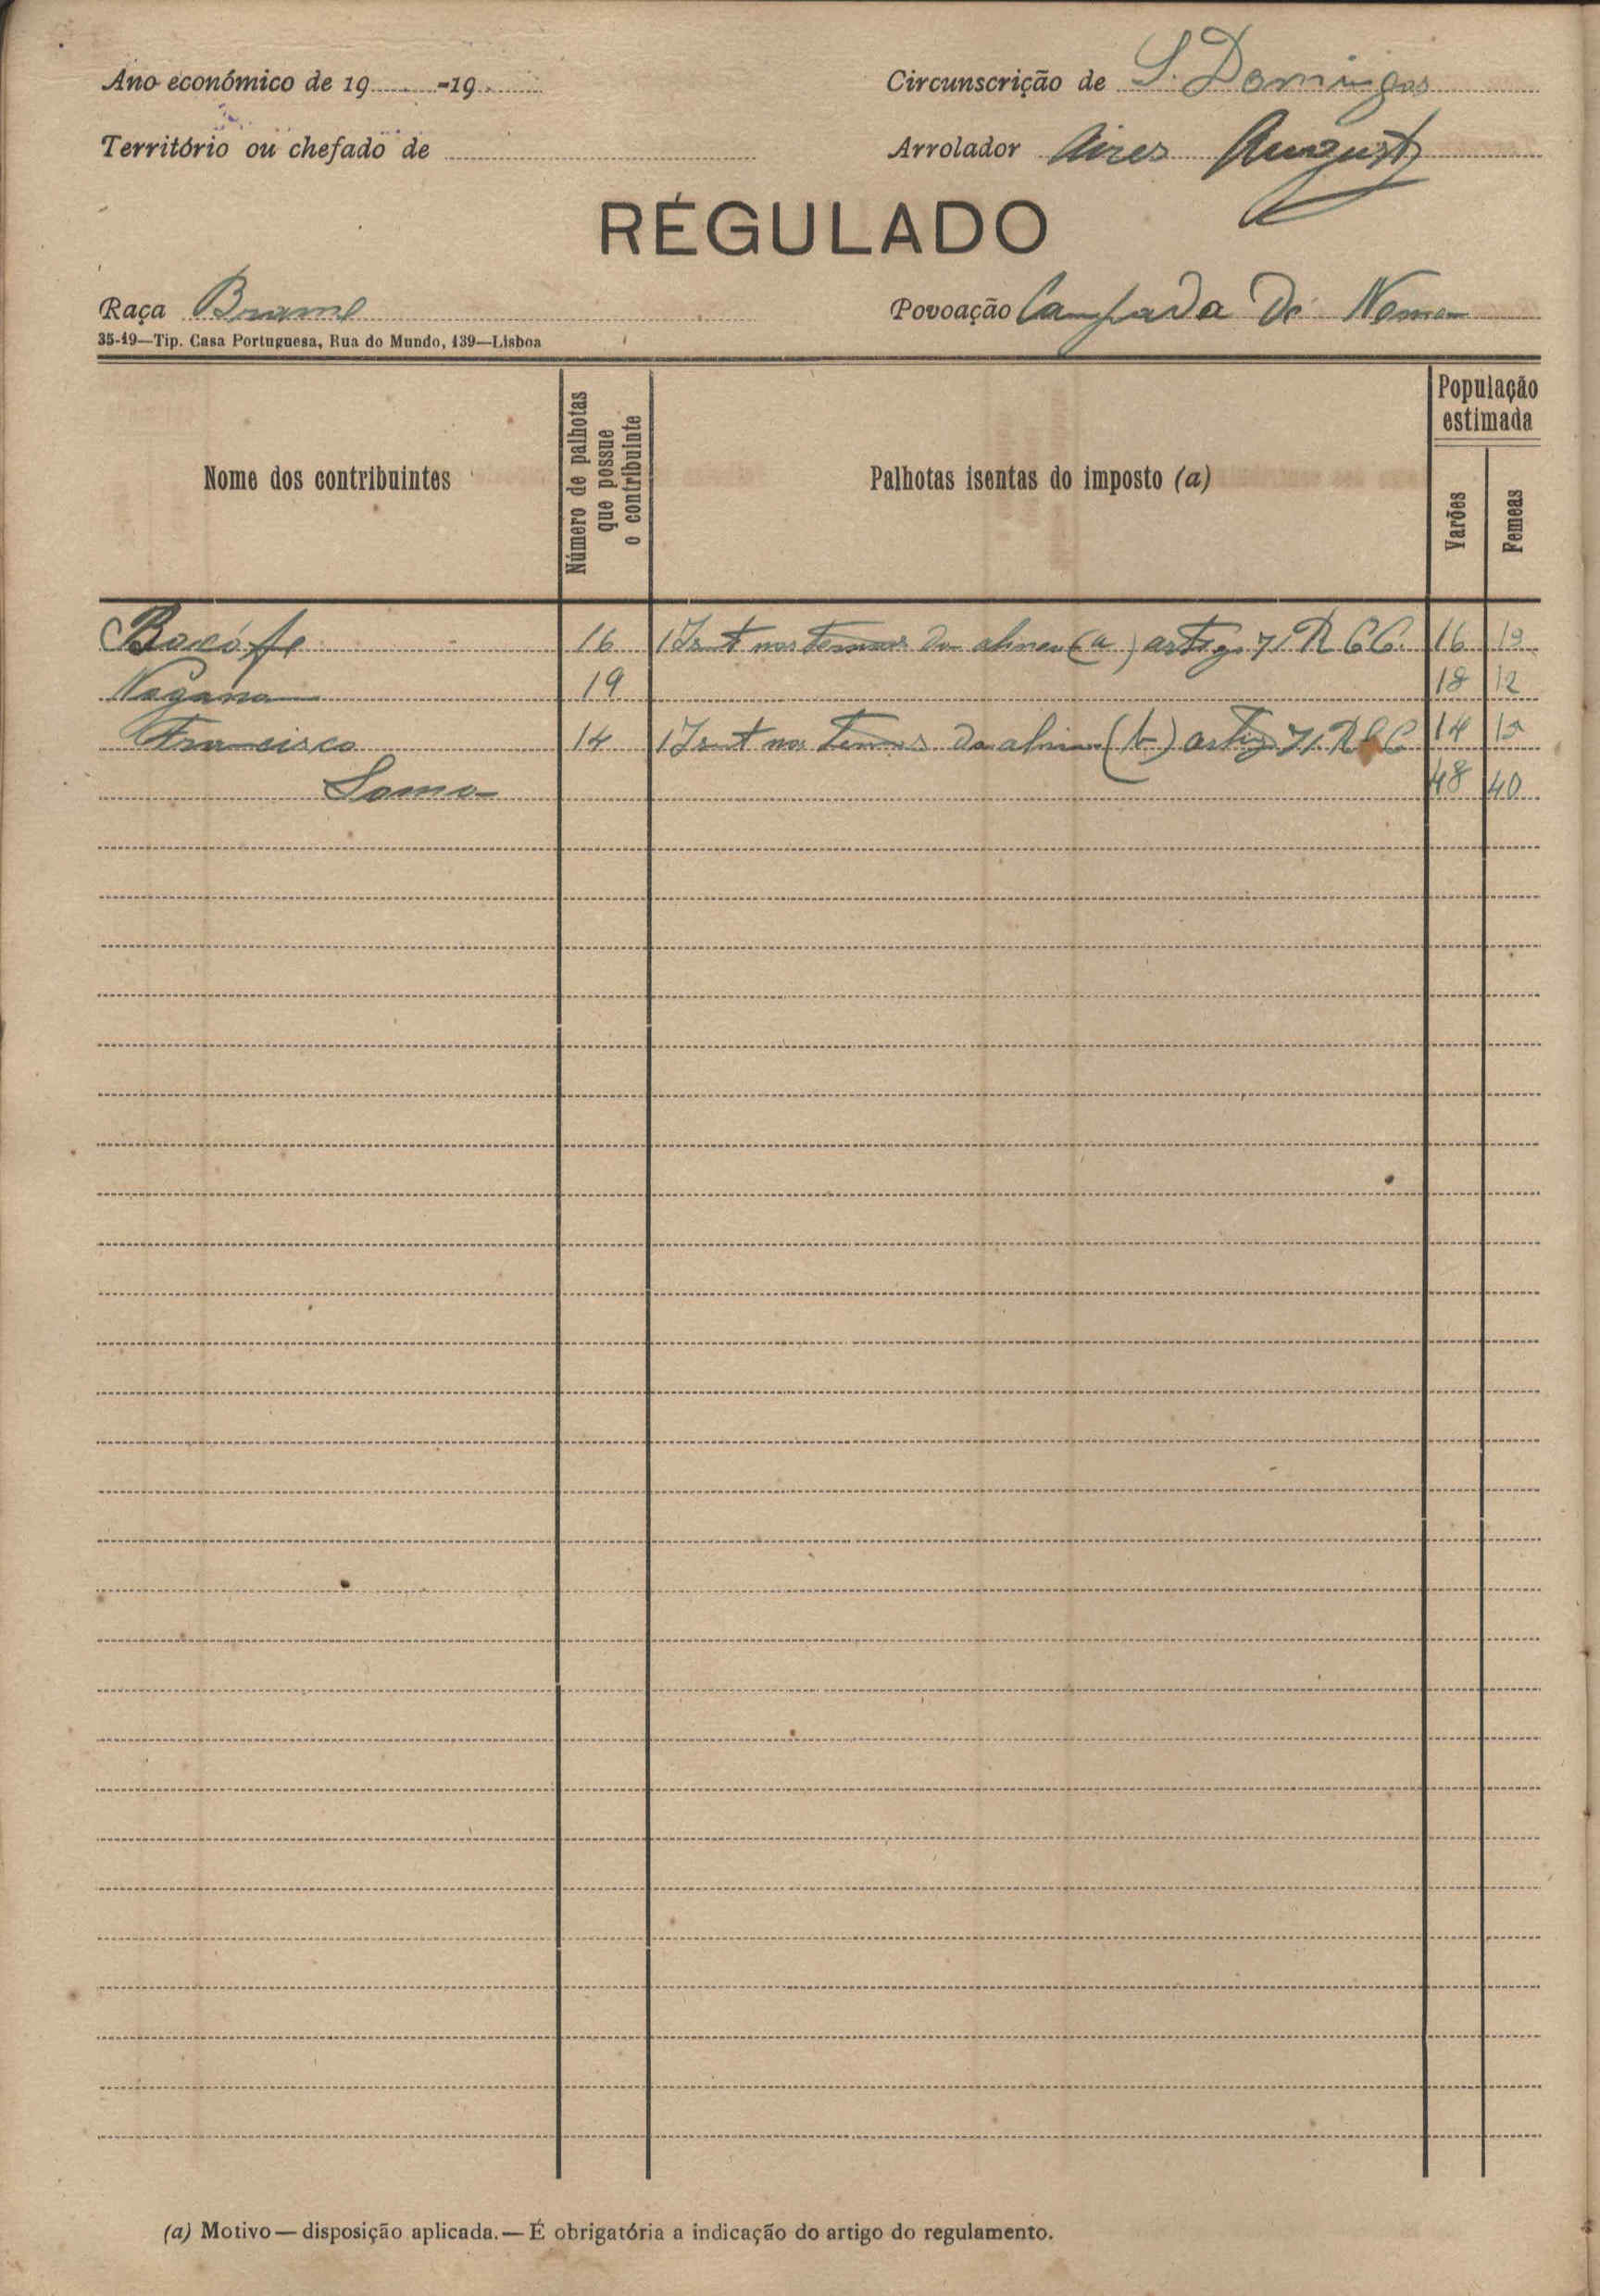 Ano económico de 19 -19
Circunscrição de S. Domingos
Território ou chefado de
Arrolador Aires Augusto
RÉGULADO
Raça Brame
Povoação Campada De
35-19—Tip. Casa Portuguesa, Rua do Mundo, 139—Lisboa
Nome dos contribuintes
Número de palhotas que possue o contribuinte
Palhotas isentas do imposto (a)
População estimada
Varões
Femeas
16 1 nos termos da alinea (a) artigo 71 R C C. 16 13
19 18 12
Francisco 14 1 nos termos da alinea (b) artigo 71. R C C 14 15
Soma 48 40
(a) Motivo — disposição aplicada. — É obrigatória a indicação do artigo do regulamento.